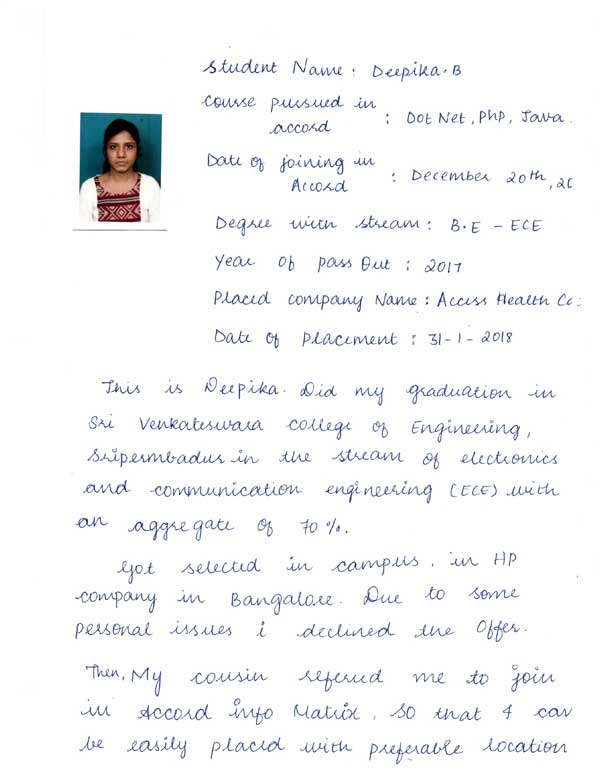 Student Name : Deepika.B
Course pursued in
accord : Dot Net, PhP, Java.
Date of joining in
Accord : December 20th, 20
Degree with stream : B.E - ECE
Year of pass Out : 2017
Placed company Name : Access Health Cc
Date of Placement : 31-1-2018
This is Deepika. Did my graduation in
Sri Venkateswara college of Engineering,
Sripermbadur in the stream of electronics
and communication engineering (ECE) with
an aggregate of 70%.
Got selected in campus, in HP
company in Bangalore. Due to some
personal issues i declined the Offer.
Then, My cousin refered me to join
in Accord info Matrix, So that I can
be easily placed with preferable location